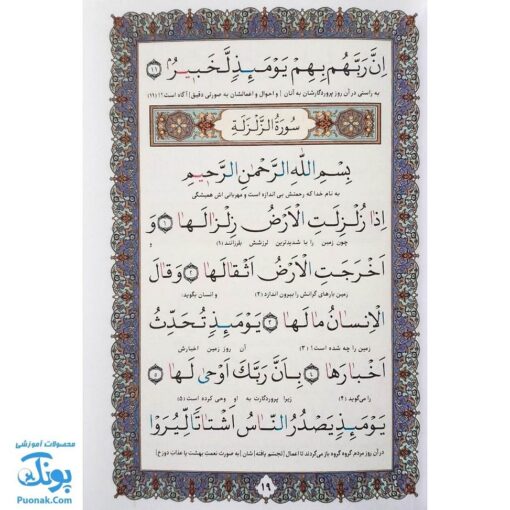 اِنَّ رَبَّهُم بِهِمْ يَوْمَئِذٍ لَّخَبيرٌ ۱۱
به راستی در آن روز پروردگارشان به آنان [ و احوال و اعمالشان به صورتی دقیق] آگاه است! (۱۱)
سُورَةُ الزَّلْزَلَةِ
بِسْمِ اللّٰهِ الرَّحْمٰنِ الرَّحيمِ
به نام خدا که رحمتش بی اندازه است و مهربانی اش همیشگی
اِذا زُلْزِلَتِ الْاَرْضُ زِلْزالَها ۱ وَ
چون زمین را با شدیدترین لرزشش بلرزانند (۱) و
اَخْرَجَتِ الْاَرْضُ اَثْقالَها ۲ وَ قالَ
زمین بارهای گرانش را بیرون اندازد (۲) و انسان بگوید:
الْاِنسانُ ما لَها ۳ يَوْمَئِذٍ تُحَدِّثُ
زمین را چه شده است؟! (۳) آن روز زمین اخبارش
اَخْبارَها ۴ بِاَنَّ رَبَّكَ اَوْحىٰ لَها ۵
را می‌گوید (۴) زیرا پروردگارت به او وحی کرده است (۵)
يَوْمَئِذٍ يَصْدُرُ النّاسُ اَشْتاتًا لِّيُرَوْا
در آن روز مردم گروه گروه باز می‌گردند تا اعمال [تجسّم یافته] شان [به صورت نعمت بهشت یا عذاب دوزخ]
۱۹
محصولات آموزشی
پونک
Puonak.Com